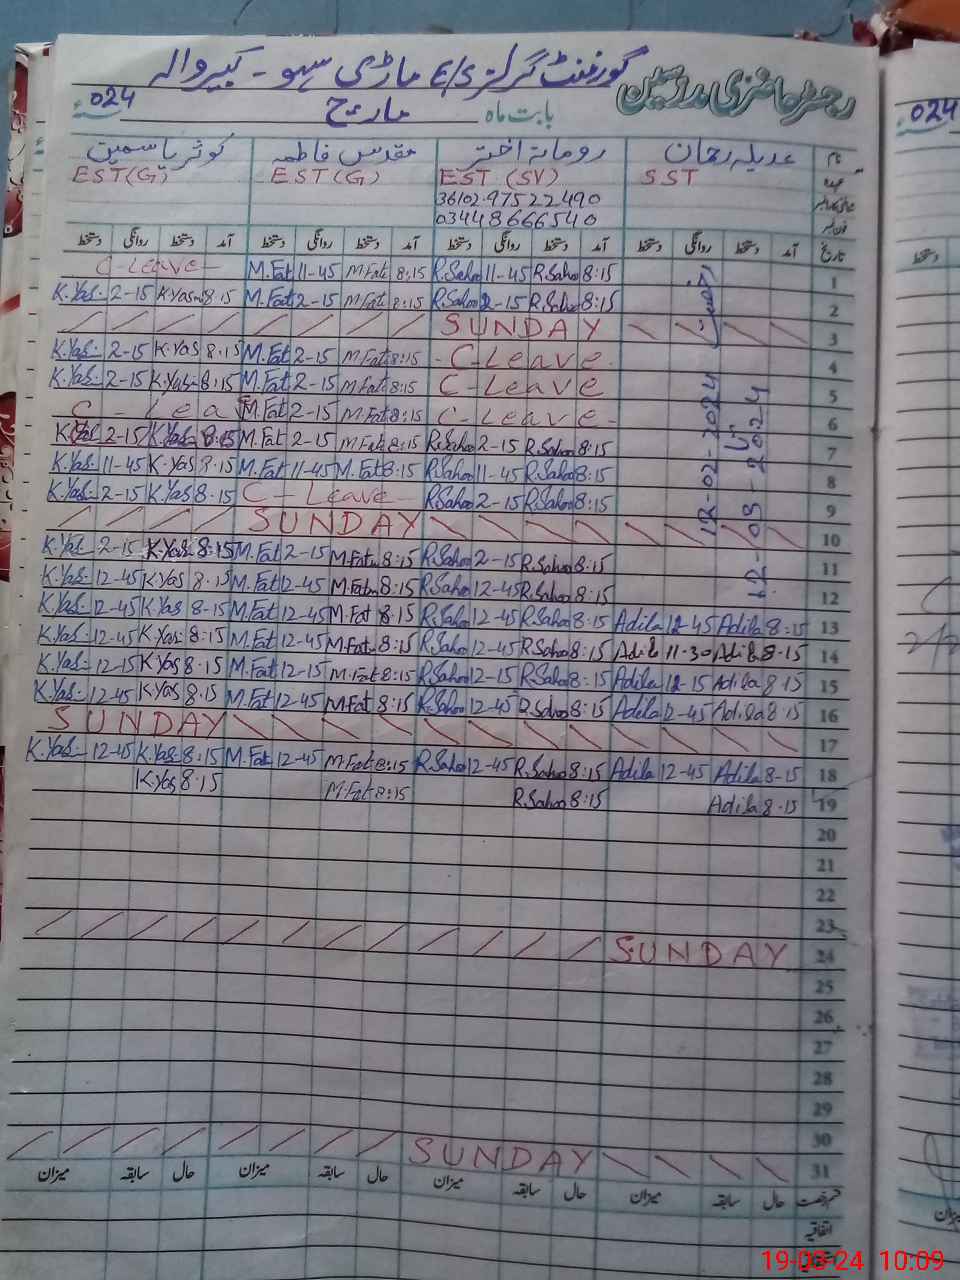 رجسٹر حاضری مدرسین گورنمنٹ گرلز E/S ماڑی سہو - کبیروالہ
بابت ماہ مارچ 024
نام عدیلہ رحمان رومانہ اختر مقدس فاطمہ کوثر یاسمین
عہدہ SST EST (SV) EST (G) EST (G)
36102-97522490
03448666540
تاریخ آمد دستخط روانگی دستخط آمد دستخط روانگی دستخط آمد دستخط روانگی دستخط آمد دستخط روانگی دستخط
C-Leave M.Fat 11-45 M.Fat 8:15 R.Sahoo 11-45 R.Sahoo 8:15 1
K.Yas 2-15 K.Yas 8.15 M.Fat 2-15 M.Fat 8:15 R.Sahoo 2-15 R.Sahoo 8:15 2
SUNDAY 3
K.Yas 2-15 K.Yas 8.15 M.Fat 2-15 M.Fat 8:15 C-Leave 4
K.Yas 2-15 K.Yas 8:15 M.Fat 2-15 M.Fat 8:15 C-Leave 5
C-Lea M.Fat 2-15 M.Fat 8:15 C-Leave 6
K.Yas 2-15 K.Yas 8:15 M.Fat 2-15 M.Fat 8:15 R.Sahoo 2-15 R.Sahoo 8:15 7
K.Yas 11-45 K.Yas 8.15 M.Fat 11-45 M.Fat 8:15 R.Sahoo 11-45 R.Sahoo 8:15 8
K.Yas 2-15 K.Yas 8.15 C-Leave R.Sahoo 2-15 R.Sahoo 8:15 9
SUNDAY 10
K.Yas 2-15 K.Yas 8:15 M.Fat 2-15 M.Fatm 8:15 R.Sahoo 2-15 R.Sahoo 8:15 11
K.Yas 12-45 K.Yas 8.15 M.Fat 12-45 M.Fatm 8:15 R.Sahoo 12-45 R.Sahoo 8:15 12
12-02-2024
12-03-2024
K.Yas 12-45 K.Yas 8-15 M.Fat 12-45 M.Fat 8:15 R.Sahoo 12-45 R.Sahoo 8:15 Adila 12-45 Adila 8:15 13
K.Yas 12-45 K.Yas 8:15 M.Fat 12-45 M.Fat 8:15 R.Sahoo 12-45 R.Sahoo 8:15 Adila 11-30 Adila 8-15 14
K.Yas 12-15 K.Yas 8.15 M.Fat 12-15 M.Fat 8:15 R.Sahoo 12-15 R.Sahoo 8:15 Adila 12-15 Adila 8-15 15
K.Yas 12-45 K.Yas 8.15 M.Fat 12-45 M.Fat 8:15 R.Sahoo 12-45 R.Sahoo 8:15 Adila 12-45 Adila 8-15 16
SUNDAY 17
K.Yas 12-45 K.Yas 8:15 M.Fat 12-45 M.Fat 8:15 R.Sahoo 12-45 R.Sahoo 8:15 Adila 12-45 Adila 8-15 18
K.Yas 8:15 M.Fat 8:15 R.Sahoo 8:15 Adila 8-15 19
20
21
22
23
SUNDAY 24
25
26
27
28
29
30
SUNDAY 31
قسم رخصت حال سابقہ میزان حال سابقہ میزان حال سابقہ میزان حال سابقہ میزان
اتفاقیہ
024
دستخط
19-03-24 10:09